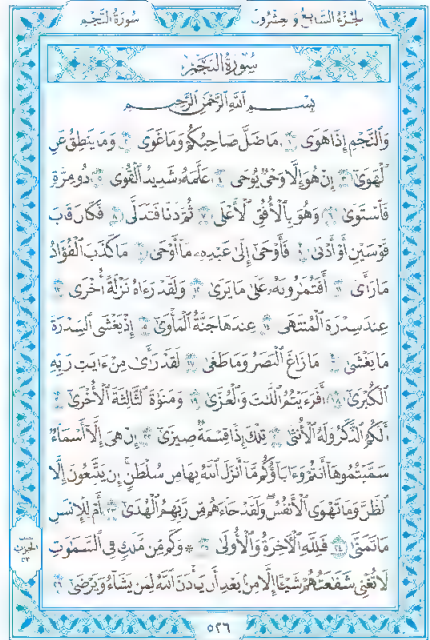 الجزء السابع و عشرون سورة النجم
سورة النجم
بسم الله الرحمن الرحيم
وَالنَّجْمِ إِذَا هَوَىٰ ١ مَا ضَلَّ صَاحِبُكُمْ وَمَا غَوَىٰ ٢ وَمَا يَنطِقُ عَنِ
الْهَوَىٰ ٣ إِنْ هُوَ إِلَّا وَحْيٌ يُوحَىٰ ٤ عَلَّمَهُ شَدِيدُ الْقُوَىٰ ٥ ذُو مِرَّةٍ
فَاسْتَوَىٰ ٦ وَهُوَ بِالْأُفُقِ الْأَعْلَىٰ ٧ ثُمَّ دَنَا فَتَدَلَّىٰ ٨ فَكَانَ قَابَ
قَوْسَيْنِ أَوْ أَدْنَىٰ ٩ فَأَوْحَىٰ إِلَىٰ عَبْدِهِ مَا أَوْحَىٰ ١٠ مَا كَذَبَ الْفُؤَادُ
مَا رَأَىٰ ١١ أَفَتُمَارُونَهُ عَلَىٰ مَا يَرَىٰ ١٢ وَلَقَدْ رَآهُ نَزْلَةً أُخْرَىٰ ١٣
عِندَ سِدْرَةِ الْمُنتَهَىٰ ١٤ عِندَهَا جَنَّةُ الْمَأْوَىٰ ١٥ إِذْ يَغْشَى السِّدْرَةَ
مَا يَغْشَىٰ ١٦ مَا زَاغَ الْبَصَرُ وَمَا طَغَىٰ ١٧ لَقَدْ رَأَىٰ مِنْ آيَاتِ رَبِّهِ
الْكُبْرَىٰ ١٨ أَفَرَأَيْتُمُ اللَّاتَ وَالْعُزَّىٰ ١٩ وَمَنَاةَ الثَّالِثَةَ الْأُخْرَىٰ ٢٠
أَلَكُمُ الذَّكَرُ وَلَهُ الْأُنثَىٰ ٢١ تِلْكَ إِذًا قِسْمَةٌ ضِيزَىٰ ٢٢ إِنْ هِيَ إِلَّا أَسْمَاءٌ
سَمَّيْتُمُوهَا أَنتُمْ وَآبَاؤُكُم مَّا أَنزَلَ اللَّهُ بِهَا مِن سُلْطَانٍ إِن يَتَّبِعُونَ إِلَّا
الظَّنَّ وَمَا تَهْوَى الْأَنفُسُ وَلَقَدْ جَاءَهُم مِّن رَّبِّهِمُ الْهُدَىٰ ٢٣ أَمْ لِلْإِنسَانِ
مَا تَمَنَّىٰ ٢٤ فَلِلَّهِ الْآخِرَةُ وَالْأُولَىٰ ٢٥ * وَكَم مِّن مَّلَكٍ فِي السَّمَاوَاتِ
لَا تُغْنِي شَفَاعَتُهُمْ شَيْئًا إِلَّا مِن بَعْدِ أَن يَأْذَنَ اللَّهُ لِمَن يَشَاءُ وَيَرْضَىٰ ٢٦
٥٢٦